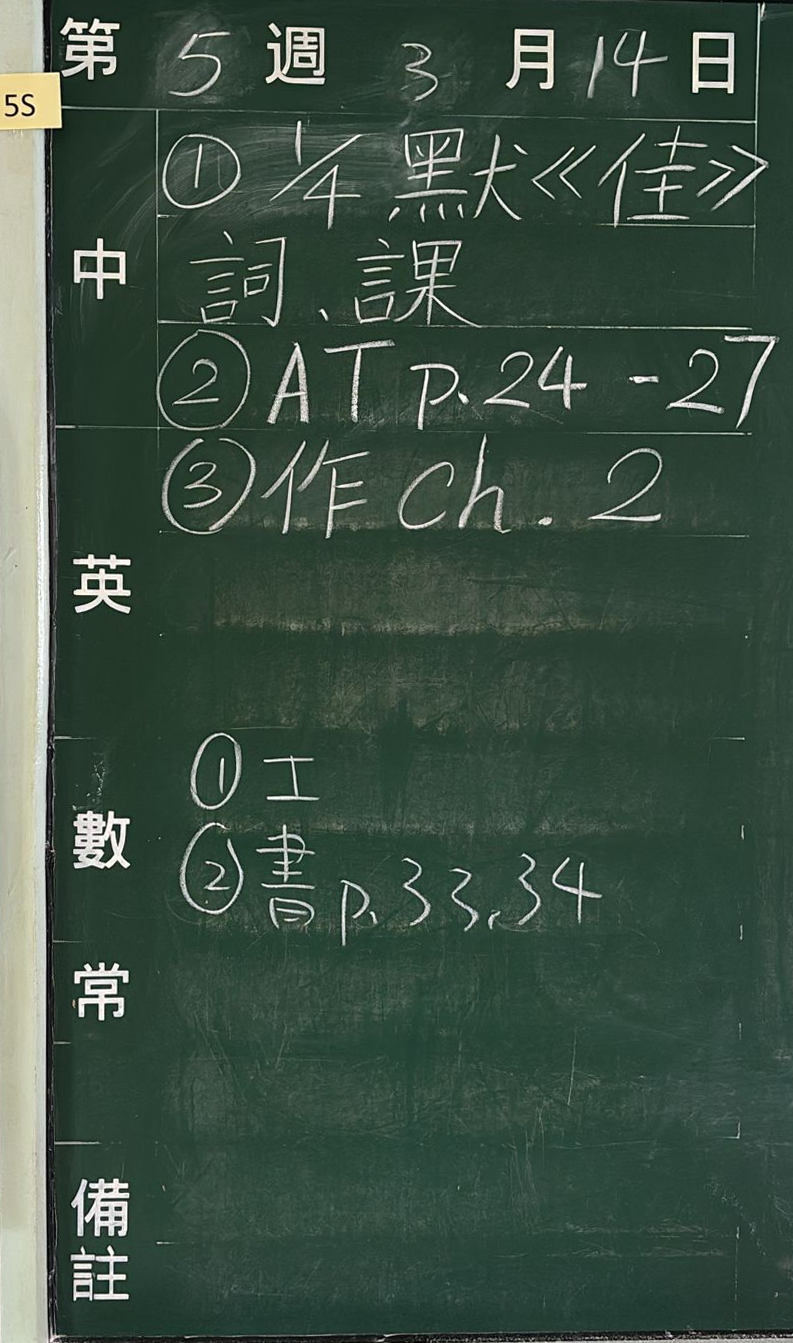 第5週3月14日
5S
中
① 1/4 默《佳》
詞、課
② AT p.24 - 27
英
③ 作 Ch. 2
數
① 工
② 書 p.33,34
常
備註